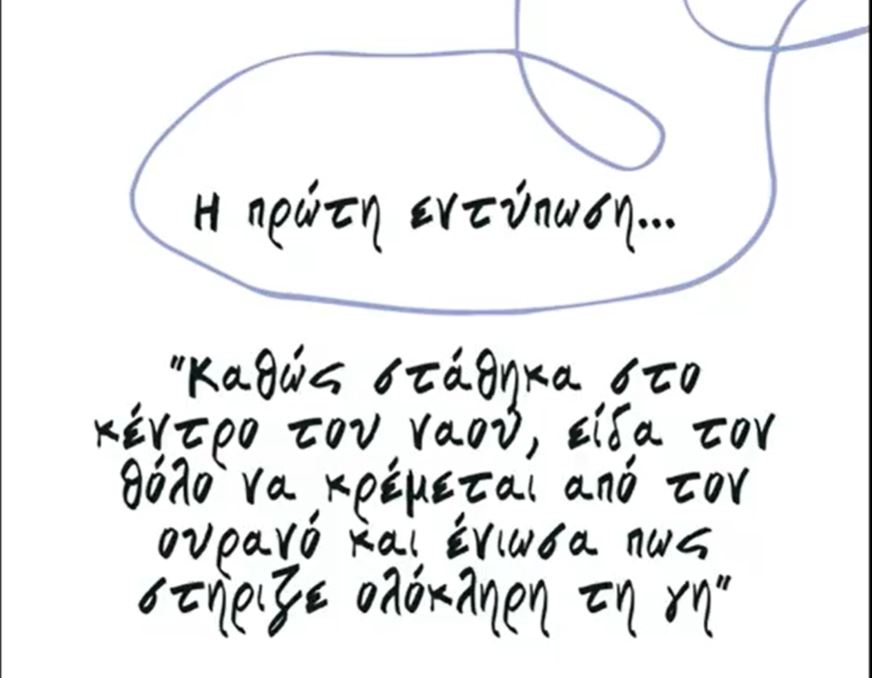 Η πρώτη εντύπωση...
"Καθώς στάθηκα στο
κέντρο του ναού, είδα τον
θόλο να κρέμεται από τον
ουρανό και ένιωσα πως
στήριζε ολόκληρη τη γη"